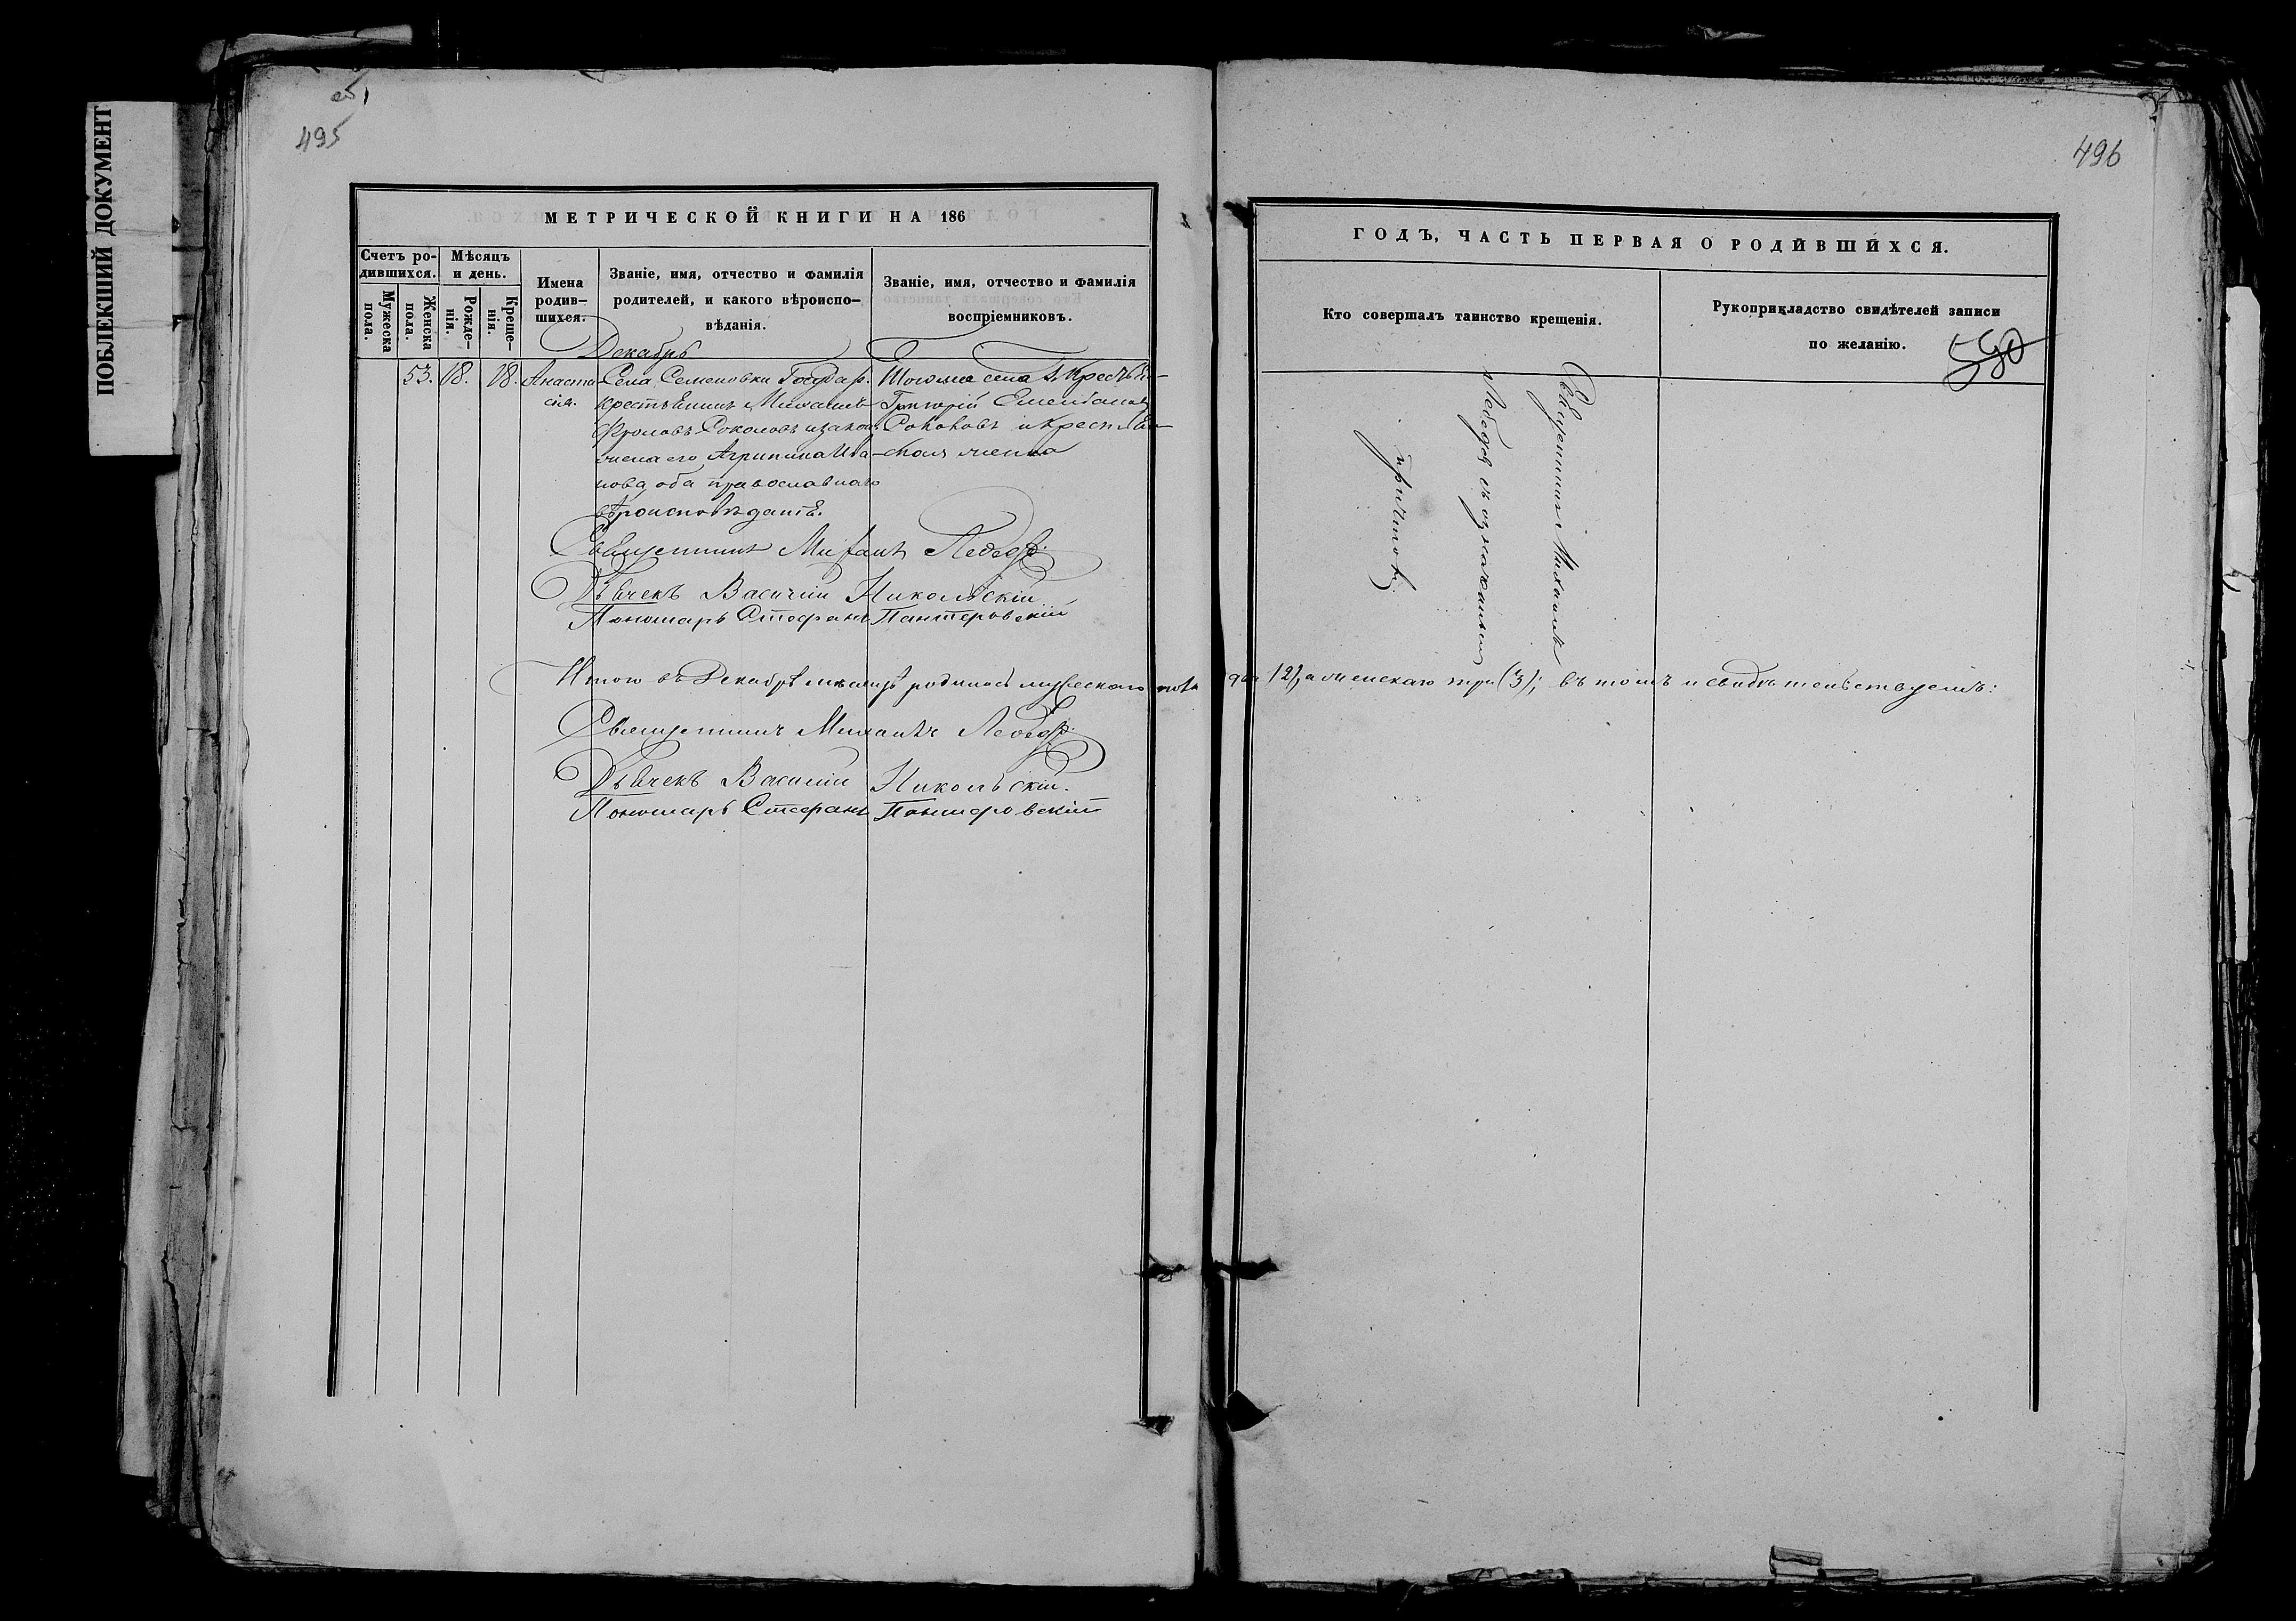 ПОБЛЕКШИЙ ДОКУМЕНТ
495
МЕТРИЧЕСКОЙ КНИГИ НА 186
Счетъ ро-
дившихся.
Мужеска
пола.
Женска
пола.
Мѣсяцъ
и день.
Рожде-
нія.
Креще-
нія.
Имена
родив-
шихся.
Званіе, имя, отчество и фамилія
родителей, и какого вѣроиспо-
вѣданія.
Званіе, имя, отчество и фамилія
воспріемниковъ.
Декабрь
53. 18. 18.
Анаста
сія.
Села Семеновки Государ.
крестьянинъ Михаилъ
Фроловъ Соколовъ и закон.
жена его Агрипина Ива-
нова, оба православнаго
вѣроисповѣданія.
Тогоже села Г. Крестья-
Григорій Емельяновъ
Соколовъ и крестьян-
ская жена
Священникъ Михаилъ Лебедев
Дьячекъ Василій Никольскій
Пономарь Стефанъ Пантеровскій
Итого въ Декабрѣ мѣсяцѣ родилось мужескаго пола два (2), а женскаго три (3); въ томъ и свидѣтельствуемъ:
Священникъ Михаилъ Лебедев
Дьячекъ Василій Никольскій.
Пономарь Стефанъ Пантеровскій
496
ГОДЪ, ЧАСТЬ ПЕРВАЯ О РОДИВШИХСЯ.
Кто совершалъ таинство крещенія.
Рукоприкладство свидѣтелей записи
по желанію.
590
Священникъ Михаилъ
Лебедев съ означеннымъ
причтомъ